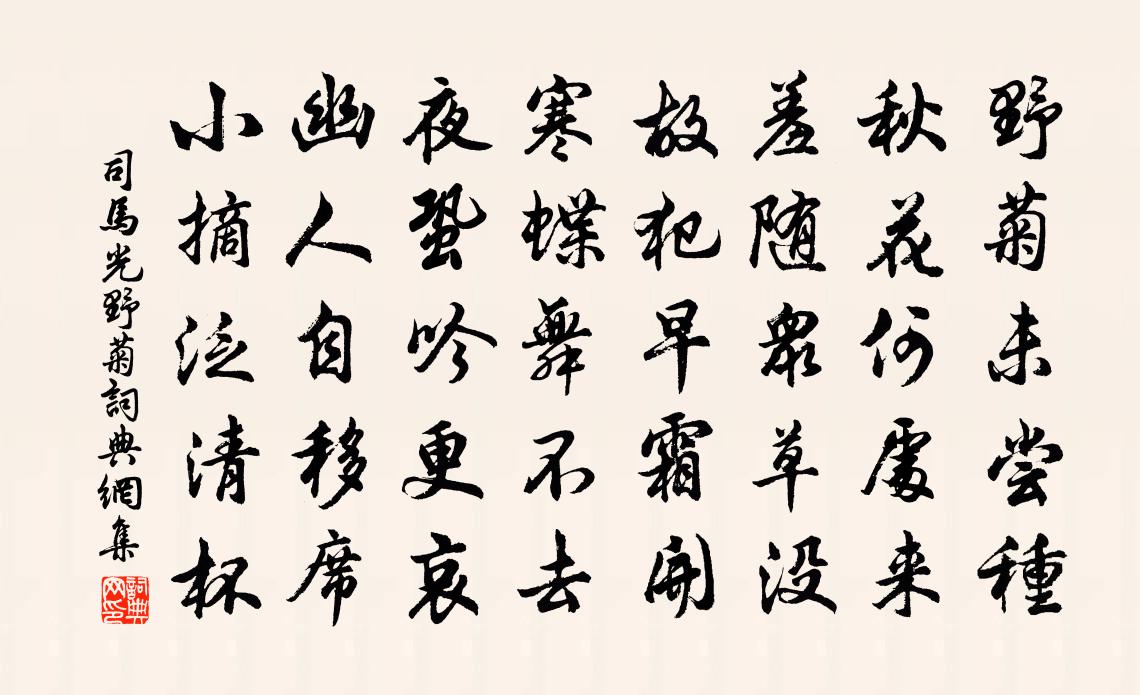 野菊未尝種
秋花何處来
羞随衆草没
故犯早霜開
寒蝶舞不去
夜蛩吟更哀
幽人自移席
小摘泛清杯
司馬光野菊詞典網集
詞典网印